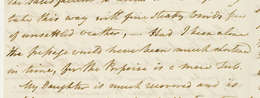 this way with five
of unsettled weather, — Had I been alone
the passage would have been much shorter
in time, for the Propoise is a mere Tub.
My Daughter is much recovered and is